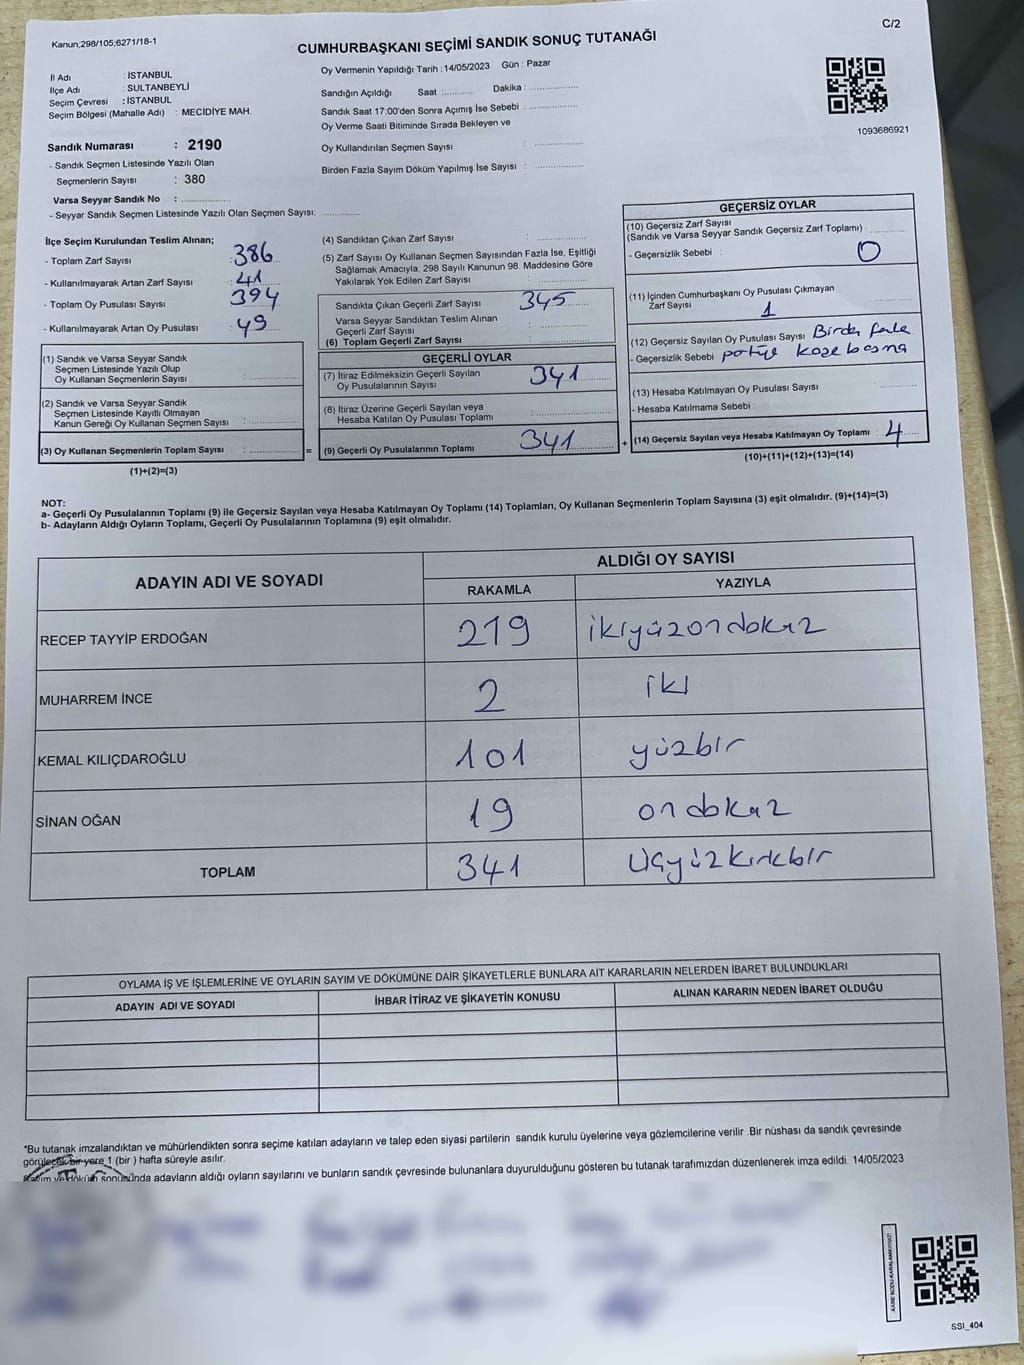 Kanun;298/105;6271/18-1
C/2
CUMHURBAŞKANI SEÇİMİ SANDIK SONUÇ TUTANAĞI
İl Adı : İSTANBUL
İlçe Adı : SULTANBEYLİ
Seçim Çevresi : İSTANBUL
Seçim Bölgesi (Mahalle Adı) : MECİDİYE MAH.
Oy Vermenin Yapıldığı Tarih : 14/05/2023 Gün : Pazar
Sandığın Açıldığı Saat : Dakika :
Sandık Saat 17:00'den Sonra Açımış İse Sebebi :
Oy Verme Saati Bitiminde Sırada Bekleyen ve
Oy Kullandırılan Seçmen Sayısı :
Birden Fazla Sayım Döküm Yapılmış İse Sayısı :
1093686921
Sandık Numarası : 2190
- Sandık Seçmen Listesinde Yazılı Olan
Seçmenlerin Sayısı : 380
Varsa Seyyar Sandık No :
- Seyyar Sandık Seçmen Listesinde Yazılı Olan Seçmen Sayısı:
İlçe Seçim Kurulundan Teslim Alınan;
- Toplam Zarf Sayısı : 386
- Kullanılmayarak Artan Zarf Sayısı : 41
- Toplam Oy Pusulası Sayısı : 394
- Kullanılmayarak Artan Oy Pusulası : 49
(1) Sandık ve Varsa Seyyar Sandık
Seçmen Listesinde Yazılı Olup
Oy Kullanan Seçmenlerin Sayısı :
(2) Sandık ve Varsa Seyyar Sandık
Seçmen Listesinde Kayıtlı Olmayan
Kanun Gereği Oy Kullanan Seçmen Sayısı :
(3) Oy Kullanan Seçmenlerin Toplam Sayısı :
(1)+(2)=(3)
(4) Sandıktan Çıkan Zarf Sayısı :
(5) Zarf Sayısı Oy Kullanan Seçmen Sayısından Fazla İse, Eşitliği
Sağlamak Amacıyla; 298 Sayılı Kanunun 98. Maddesine Göre
Yakılarak Yok Edilen Zarf Sayısı :
Sandıkta Çıkan Geçerli Zarf Sayısı : 345
Varsa Seyyar Sandıktan Teslim Alınan
Geçerli Zarf Sayısı :
(6) Toplam Geçerli Zarf Sayısı :
GEÇERLİ OYLAR
(7) İtiraz Edilmeksizin Geçerli Sayılan
Oy Pusulalarının Sayısı : 341
(8) İtiraz Üzerine Geçerli Sayılan veya
Hesaba Katılan Oy Pusulası Toplamı :
= (9) Geçerli Oy Pusulalarının Toplamı : 341
GEÇERSİZ OYLAR
(10) Geçersiz Zarf Sayısı
(Sandık ve Varsa Seyyar Sandık Geçersiz Zarf Toplamı) :
- Geçersizlik Sebebi : 0
(11) İçinden Cumhurbaşkanı Oy Pusulası Çıkmayan
Zarf Sayısı 1
(12) Geçersiz Sayılan Oy Pusulası Sayısı
- Geçersizlik Sebebi
(13) Hesaba Katılmayan Oy Pusulası Sayısı :
- Hesaba Katılmama Sebebi :
+ (14) Geçersiz Sayılan veya Hesaba Katılmayan Oy Toplamı : 4
(10)+(11)+(12)+(13)=(14)
NOT:
a- Geçerli Oy Pusulalarının Toplamı (9) ile Geçersiz Sayılan veya Hesaba Katılmayan Oy Toplamı (14) Toplamları, Oy Kullanan Seçmenlerin Toplam Sayısına (3) eşit olmalıdır. (9)+(14)=(3)
b- Adayların Aldığı Oyların Toplamı, Geçerli Oy Pusulalarının Toplamına (9) eşit olmalıdır.
ADAYIN ADI VE SOYADI ALDIĞI OY SAYISI
RAKAMLA YAZIYLA
RECEP TAYYİP ERDOĞAN 219 ikiyüzondokuz
MUHARREM İNCE 2 iki
KEMAL KILIÇDAROĞLU 101 yüzbir
SİNAN OĞAN 19 ondokuz
TOPLAM 341 üçyüzkırkbir
OYLAMA İŞ VE İŞLEMLERİNE VE OYLARIN SAYIM VE DÖKÜMÜNE DAİR ŞİKAYETLERLE BUNLARA AİT KARARLARIN NELERDEN İBARET BULUNDUKLARI
ADAYIN ADI VE SOYADI İHBAR İTİRAZ VE ŞİKAYETİN KONUSU ALINAN KARARIN NEDEN İBARET OLDUĞU
*Bu tutanak imzalandıktan ve mühürlendikten sonra seçime katılan adayların ve talep eden siyasi partilerin sandık kurulu üyelerine veya gözlemcilerine verilir .Bir nüshası da sandık çevresinde
görülecek bir yere 1 (bir ) hafta süreyle asılır.
Sayım ve döküm sonununda adayların aldığı oyların sayılarını ve bunların sandık çevresinde bulunanlara duyurulduğunu gösteren bu tutanak tarafımızdan düzenlenerek imza edildi. 14/05/2023
KARE KODU KARALAMAYINIZ!
SSI_404